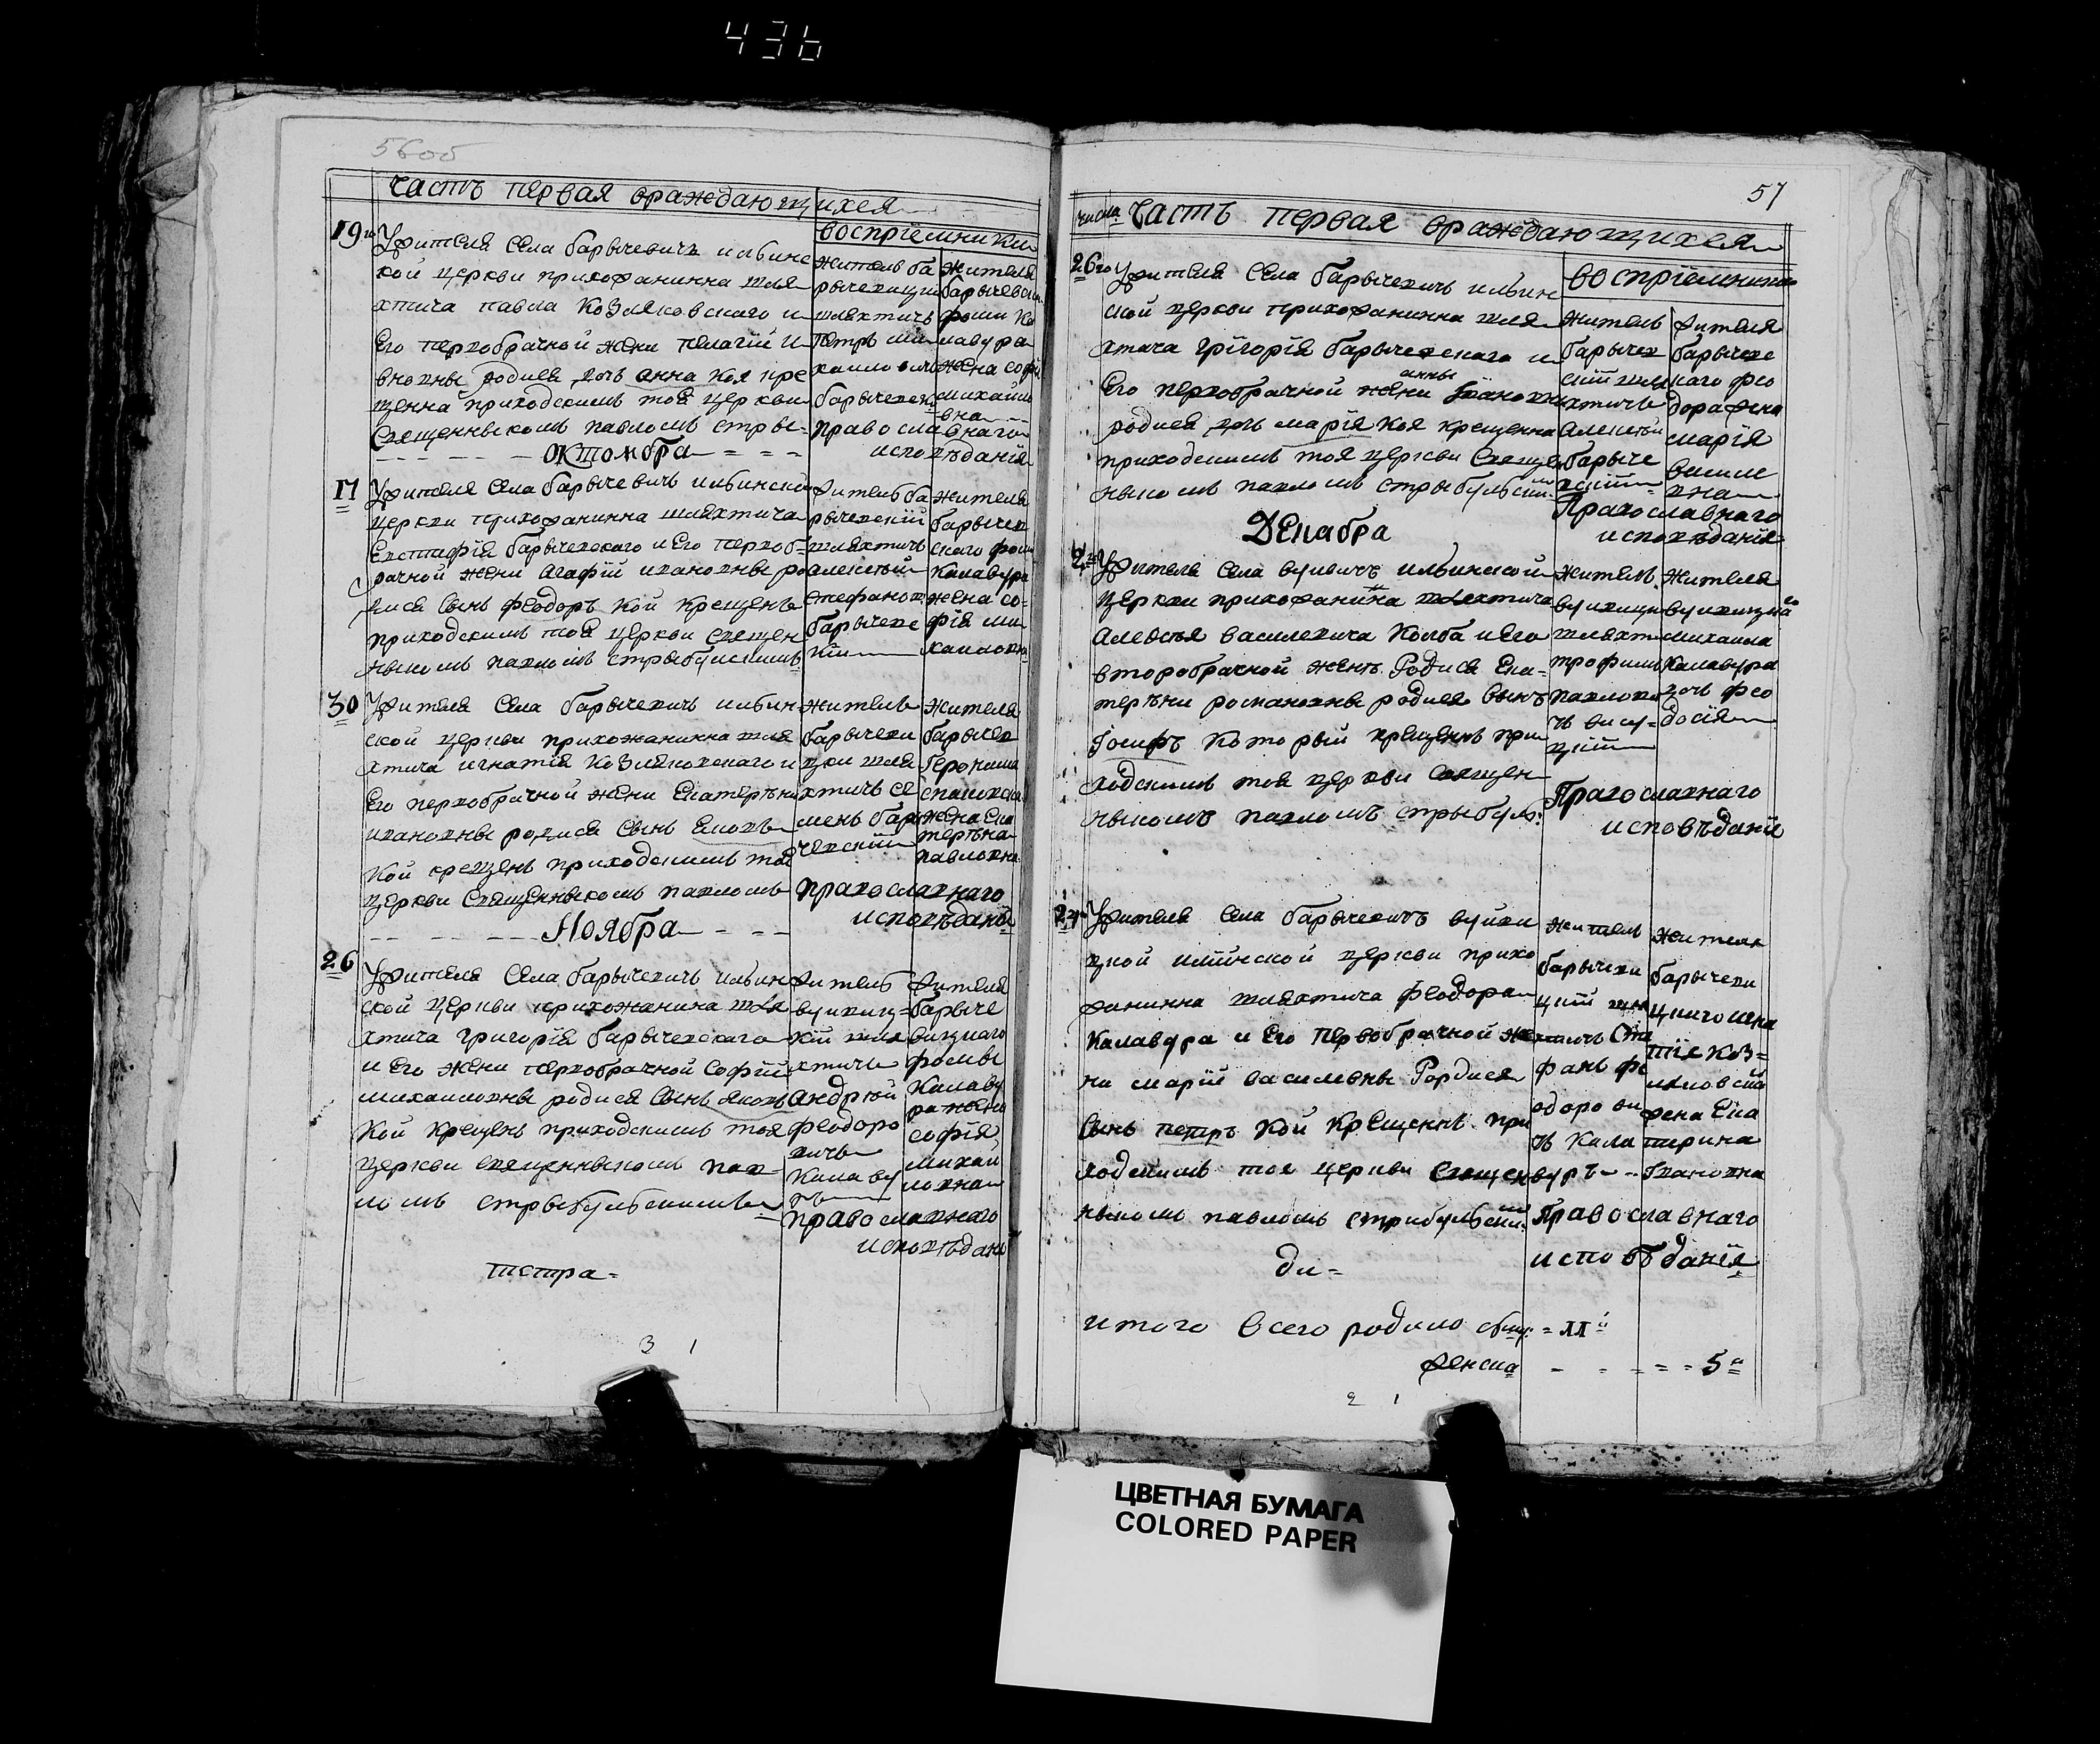 43b
56об
Часть первая ораждающихся
воспріемники
19го
Ужителя села барычевичъ ильинс
кой церкви прихожанина шля
хтича павла козляковскаго и
Его первобрачной жени пелагіи и
вновны родися дочь анна коя кре
щенна приходскимъ тоя церкви
Священныкомъ павломъ стры=
житель ба
шляхтичь
петръ ми
хаиловичь
барычевск
жителя
барычевск
фоми ка
лавура
жена софи
михаило
вна
православнаго
исповѣданія
Октомбра
17
Ужителя села барычевичъ ильинско
церкви прихожанина шляхтича
Евстафія барычевскаго и Его первоб=
рачной жени агафіи ивановны ро
дися сынъ феодоръ кой крещенъ
приходскимъ тоя церкви священ
ныкомъ павломъ стрыбулскимъ
житель ба
рычевскій
шляхтичь
алексѣй
стефанов
барычевс
кій
жителя
барычев
скаго фоми
калавура
жена со=
фія ми
хаиловн
30
Ужителя села барычевичъ ильин
ской церкви прихожанина шля
хтича игнатія козляковскаго и
Его первобрачной жени Екатерѣни
ивановны родися сынъ Емовъ
кой крещенъ приходскимъ тоя
церкви Священныкомъ павломъ
житель
барычеви
цки шля
хтичь се
менъ бары
чевскій
жителя
барычев
Героніма
жена Ека
терѣна
павловна
православнаго
исповѣдані
Ноября
26
Ужителя села барычевичъ ильин
ской церкви прихожанина шля
хтича григорія барычевскаго
и Его жени первобрачной софіи
михаиловны родися сынъ яковъ
кой крещенъ приходскимъ тоя
церкви священныкомъ пав
ломъ стрыбульскимъ
житель
вуивиц=
кій шля
хтичь
андрѣй
феодоро
вичь
калаву
ръ
жителя
барыче
вицкаго
фомы
калаву
ра жена
софія
михай
ловна
православнаго
исповѣдані
тетра=
3 1
57
числа
Часть первая ораждающихся
воспріемники
26го
Ужителя села барычевичъ ильин
ской церкви прихожанина шля
хтича григорія барычевскаго и
анны
Его первобрачной жени івановны
родися дочь марія коя крещенна
приходскимъ тоя церкви Свяще
ныкомъ павломъ стрыбульски
житель
барычев
скій шля
хтичь
алексѣй
барыче
вскій
жителя
барычевс
каго фео
дора жена
марія
василе
вна
Православнаго
исповѣданія
Декабра
2го
Ужителя села вуивичъ ильинской
церкви прихожанина шляхтича
алексѣя василевича колба и Его
второбрачной женѣ родися Ека=
терѣни романовны родися сынъ
Іосифъ который крещенъ при
ходскимъ тоя церкви священ
ныкомъ павломъ стрыбул:
житель
вуивицк
шляхт
трофимъ
павлови
чъ вису=
цкій
жителя
вуивицка
михаила
калавура
дочь фео
досія
Православнаго
исповѣданія
24
Ужителя села барычевичъ вуиви
цкой илийнской церкви прихо
жанинна шляхтича феодора
калавура и Его первобрачной же
ни маріи василевны родися
сынъ петръ кой крещеннъ при
ходскимъ тоя церкви священ
ныкомъ павломъ стрибульски:
житель
барычеви
цкій шля
хтичь Сте
фанъ фе
одорови
чъ кала
вуръ
жителя
барычеви
цкаго игна
тіе коз=
ляковска
жена Ека
терина
Івановна
Православнаго
исповѣданія
ди=
итого всего родило
женска = = = = 5
2 1
ЦВЕТНАЯ БУМАГА
COLORED PAPER